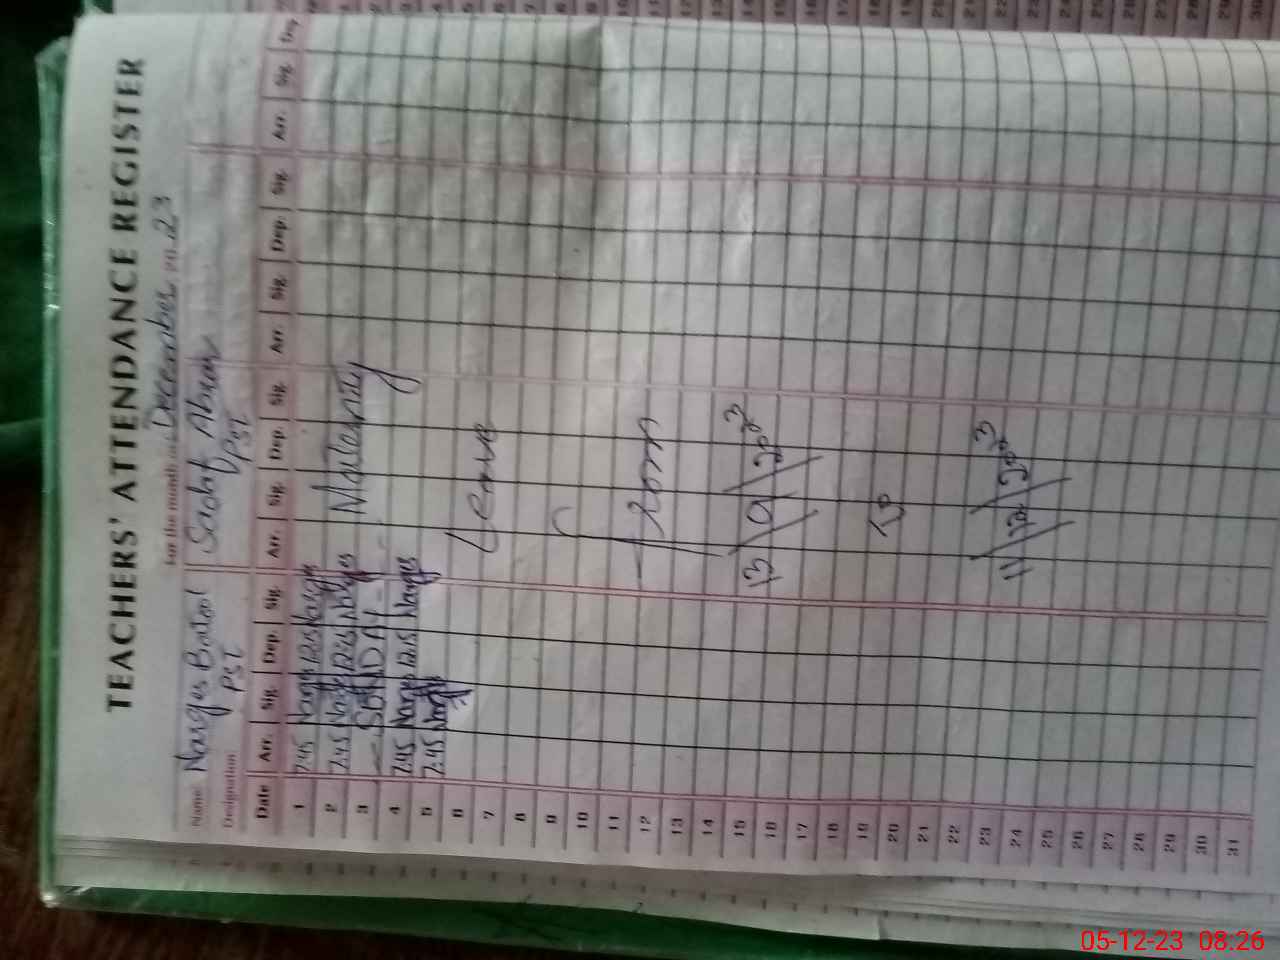 TEACHERS' ATTENDANCE REGISTER
For the month of December 20 23
Name: Narges Batool Sadaf Abrar
Designation PST PST
Date Arr. Sig. Dep. Sig. Arr. Sig. Dep. Sig. Arr. Sig. Dep. Sig. Arr. Sig. Dep
1 7:45 Narges 12:15 Narges
2 7:45 Narges 12:15 Narges Maternity
3 — SUNDAY —
4 7:45 Narges 12:15 Narges
5 7:45 Narges
6
7 Leave
8
9
10
11
12 from
13
14
15
16 13/9/2023
17
18
19
20 To
21
22
23
24 11/12/2023
25
26
27
28
29
30
31
05-12-23 08:26